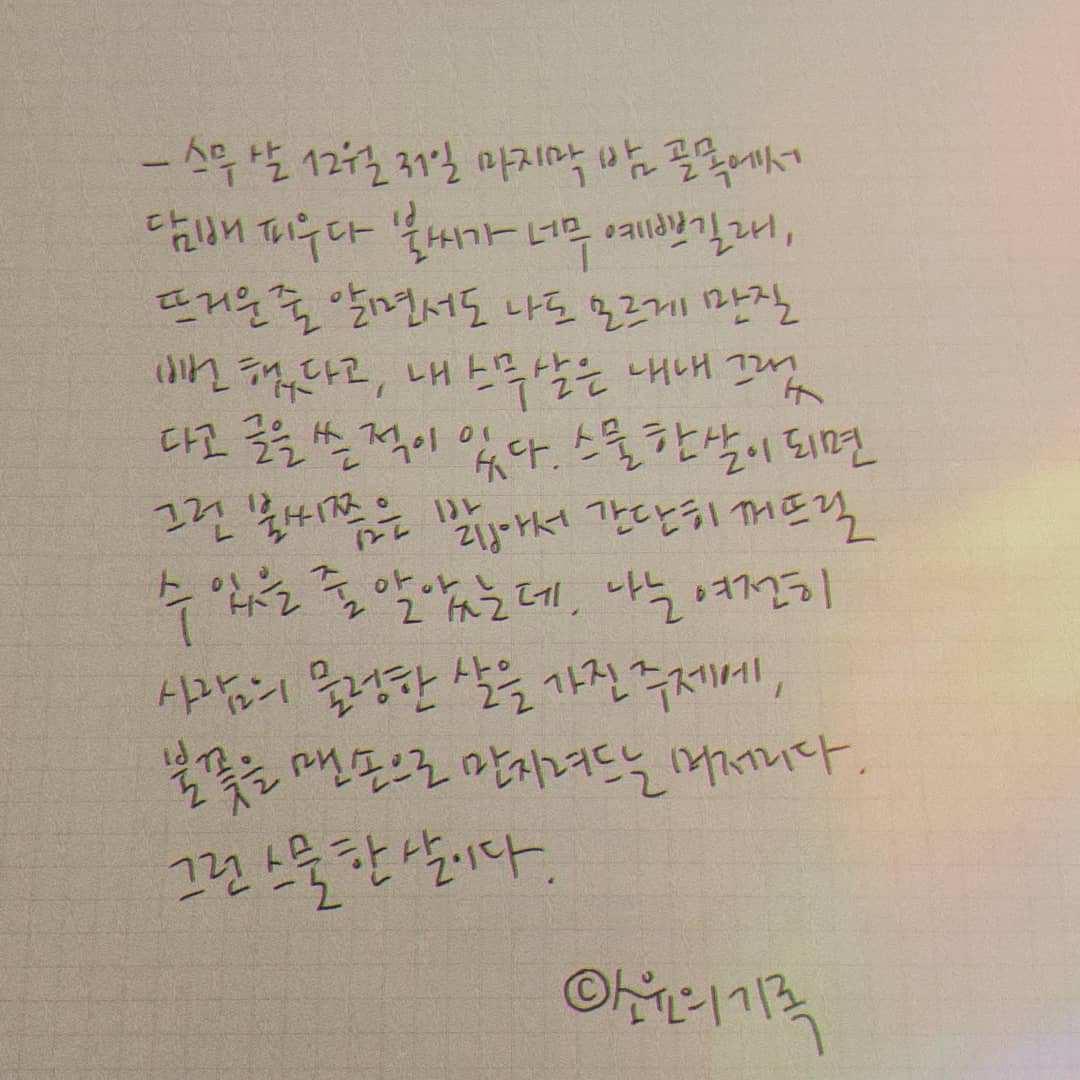 - 스무 살 12월 31일 마지막 밤 골목에서
담배 피우다 불씨가 너무 예쁘길래,
뜨거운 줄 알면서도 나도 모르게 만질
뻔 했다고, 내 스무살은 내내 그랬
다고 글을 쓴 적이 있다. 스물 한살이 되면
그런 불씨쯤은 밟아서 간단히 꺼뜨릴
수 있을 줄 알았는데. 나는 여전히
사람의 물렁한 살을 가진 주제에,
불꽃을 맨손으로 만지려드는 머저리다.
그런 스물 한 살이다.
©소윤의 기록